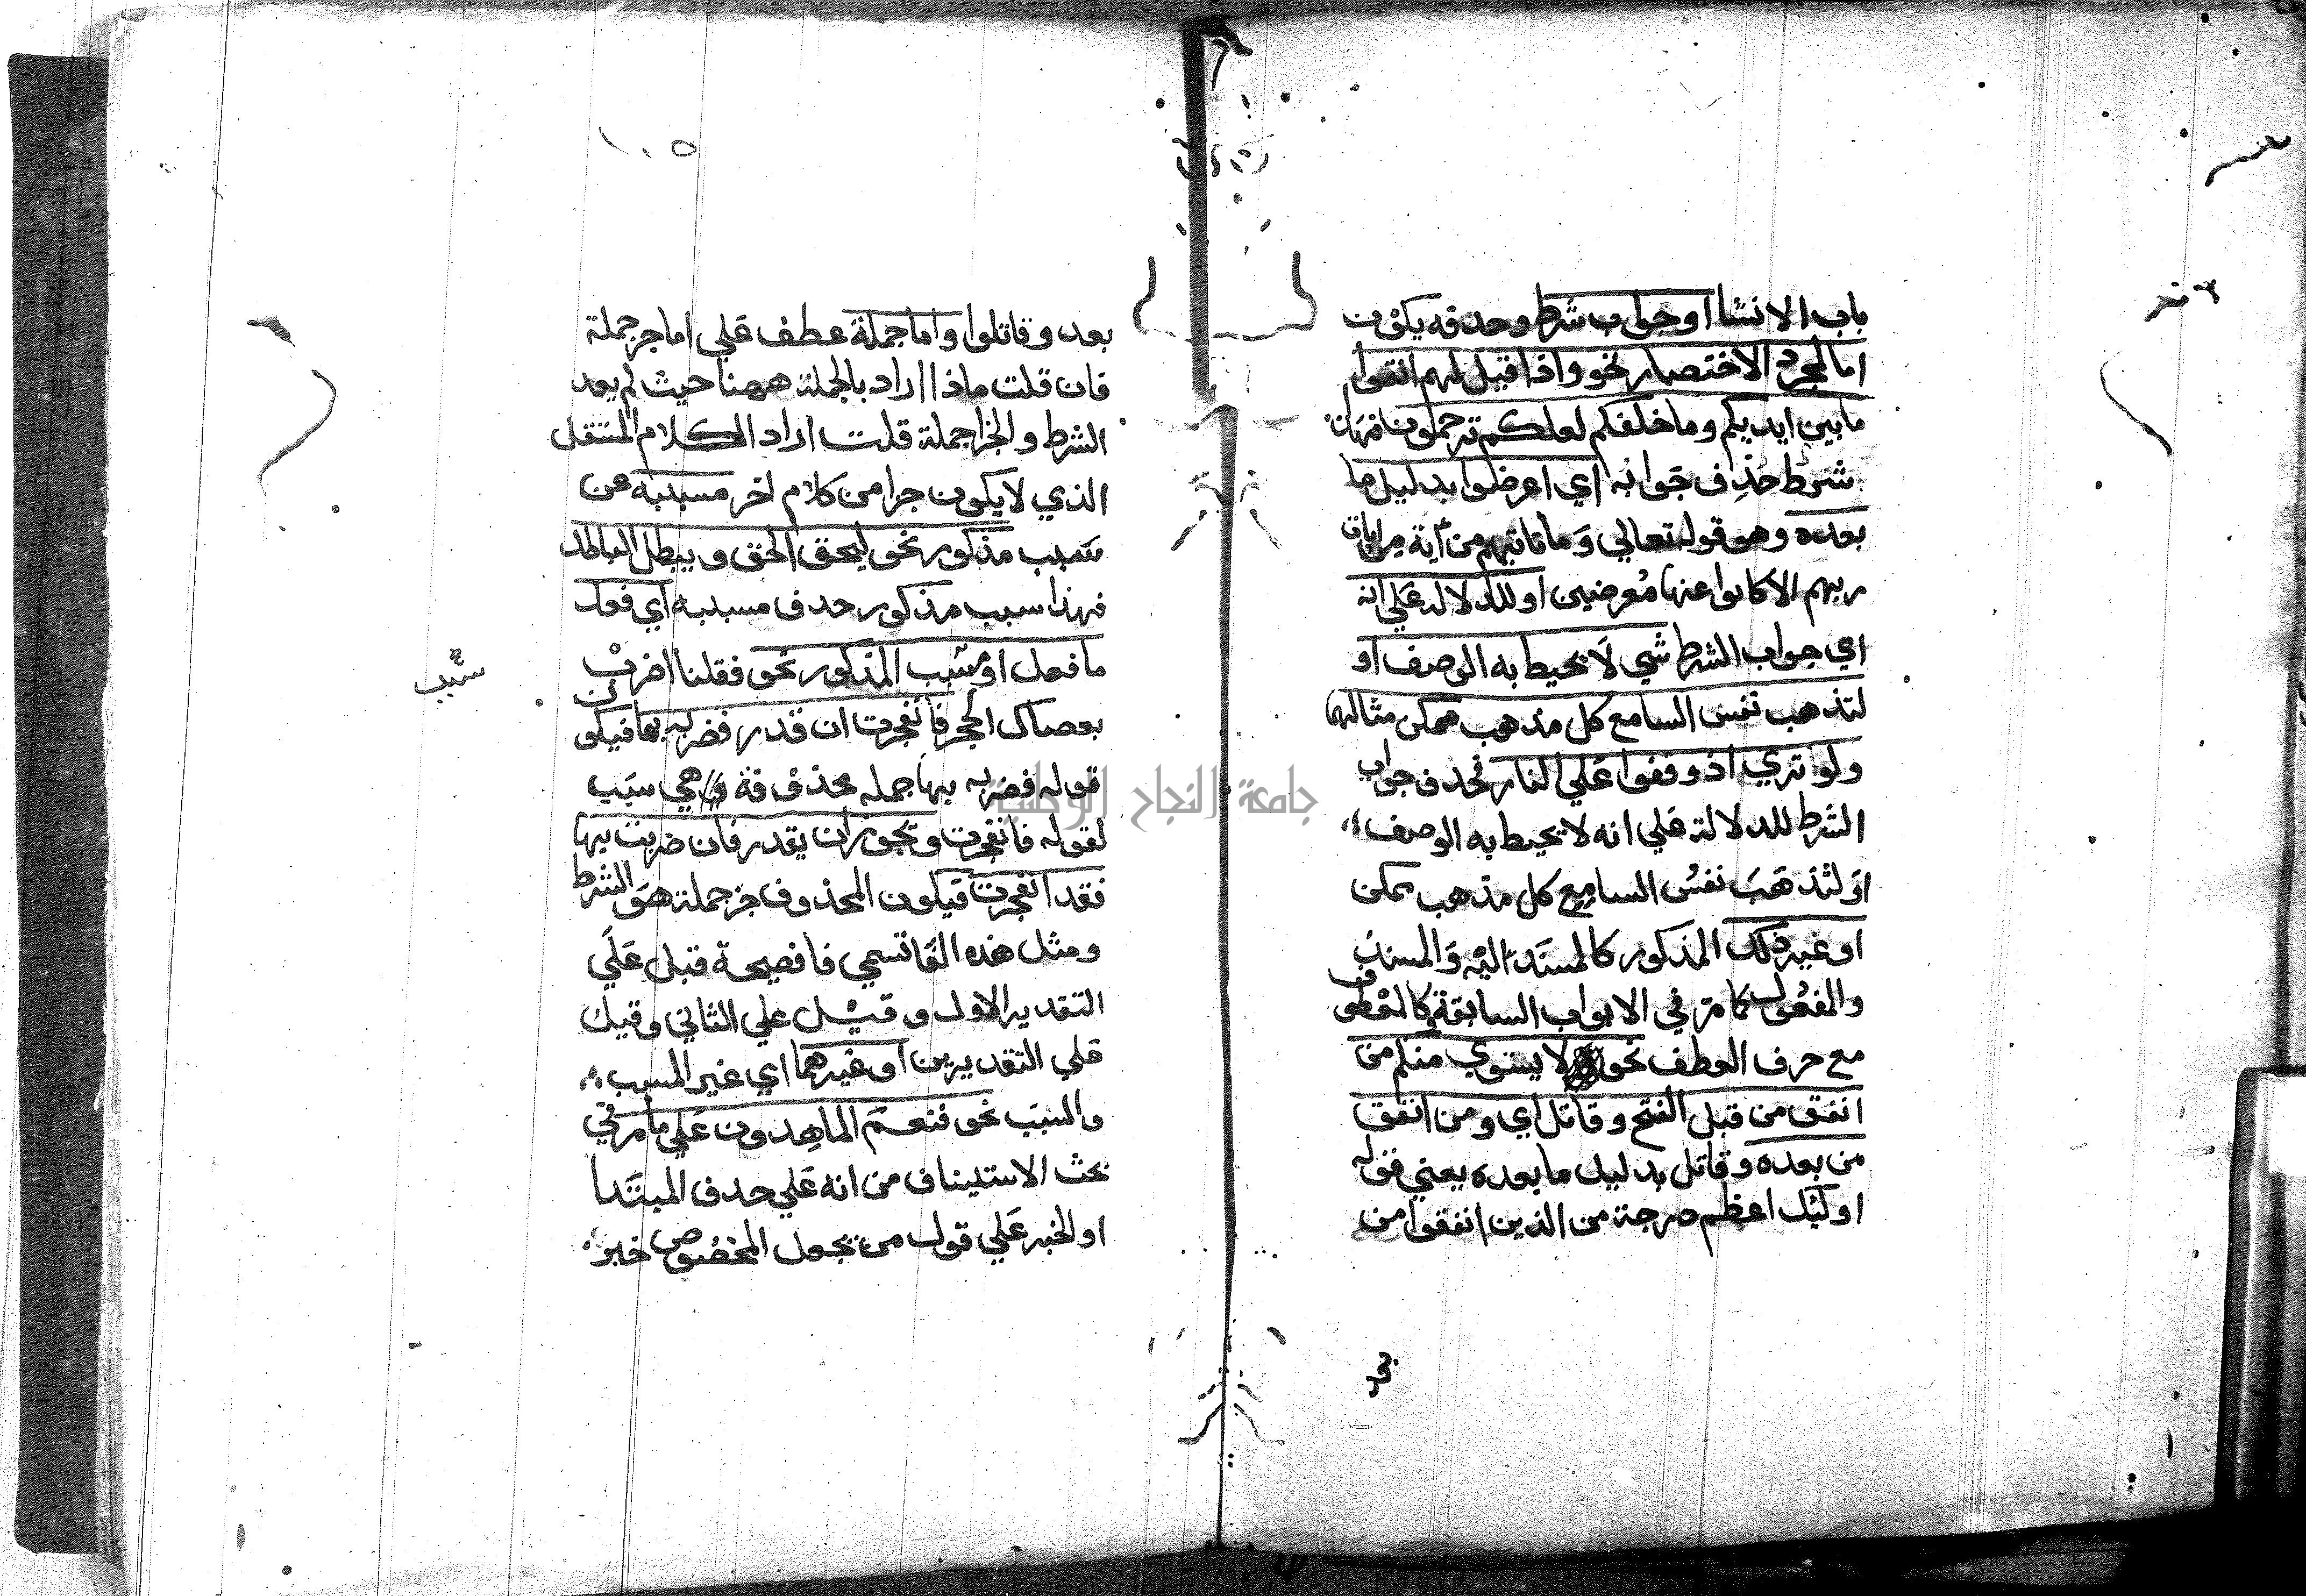 باب الانشا او جواب شرط وحدفه يكون
اما لمجرد الاختصار نحو واذا قيل لهم اتقوا
ما بين ايديكم وما خلفكم لعلكم ترحمون فهذا
شرط حذف جوابه اي اعرضوا بدليل ما
بعده وهو قوله تعالي وما تاتيهم من آية من ايات
ربهم الا كانوا عنها معرضين او للدلاله علي انه
اي جواب الشرط شي لا يحيط به الوصف او
لتذهب نفس السامع كل مذهب ممكن مثالهما
ولو تري اذ وقفوا علي النار فحدف جواب
الشرط للدلالة علي انه لا يحيط به الوصف
او لتذهب نفس السامع كل مذهب ممكن
او غير ذلك المذكور كالمسند اليه والمسند
والمفعول كما مر في الابواب السابقة كالمعطوف
مع حرف العطف نحو لا يستوي منكم من
انفق من قبل الفتح وقاتل اي ومن انفق
من بعده وقاتل بدليل ما بعده يعني قوله
اوليك اعظم درجة من الذين انفقوا من
١٠٥
بعد وقاتلوا واما جملة عطف علي اما جز جملة
فان قلت ماذا اراد بالجملة ههنا حيث لم يعد
الشرط والجزا جملة قلت اراد الكلام المستقل
الذي لا يكون جزا من كلام اخر مسببة عن
سبب مذكور نحو ليحق الحق ويبطل الباطل
فهذا سبب مذكور حدف مسببه اي فعل
ما فعل او سبب المذكور نحو فقلنا اضرب
سبب
بعصاك الحجر فانفجرت ان قدر فضربه بها فيكون
قوله فضربه بها جمله محذوفة وهي سبب
لقوله فانفجرت ويجوز ان يقدر فان ضربت بها
فقد انفجرت فيكون المحذوف جز جملة هو الشرط
ومثل هذه الفا تسمي فا فصيحة قيل علي
التقدير الاول وقيل علي الثاني وقيل
علي التقديرين او غيرهما اي غير المسبب
والسبب نحو فنعم الماهدون علي ما مر في
بحث الاستيناف من انه علي حدف المبتدا
او الخبر علي قول من يجعل المخصوص خبر
جامعة النجاح الوطنية